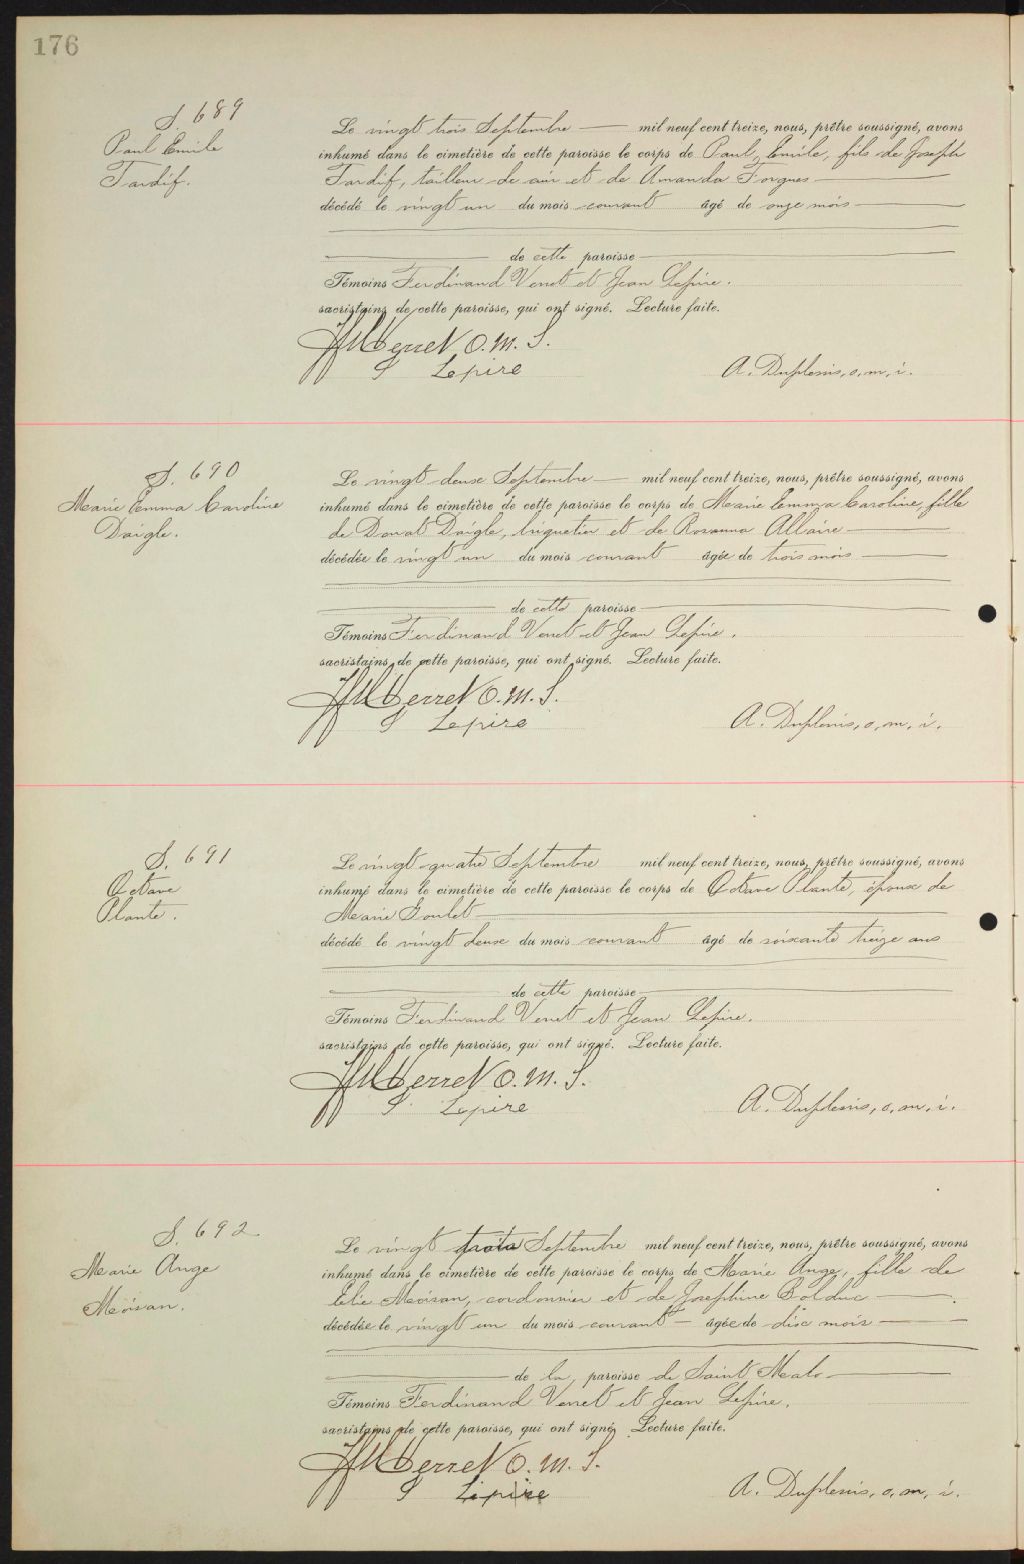 176
S. 689
Paul Emile
Tardif.
Le vingt trois Septembre — mil neuf cent treize, nous, prêtre soussigné, avons
inhumé dans le cimetière de cette paroisse le corps de Paul Emile, fils de Joseph
Tardif, tailleur de cuir et de Amanda Forgues —
décédé le vingt un du mois courant âgé de onze mois —
— de cette paroisse —
Témoins Ferdinand Verret et Jean Lepire.
sacristains de cette paroisse, qui ont signé. Lecture faite.
Verret O. M. S.
Lepire
A. Duplessis, o. m. i.
S. 690
Marie Emma Caroline
Daigle.
Le vingt deux Septembre — mil neuf cent treize, nous, prêtre soussigné, avons
inhumé dans le cimetière de cette paroisse le corps de Marie Emma Caroline, fille
de Donat Daigle, briquetier et de Rosanna Allaire —
décédée le vingt un du mois courant âgée de trois mois —
— de cette paroisse —
Témoins Ferdinand Verret et Jean Lepire.
sacristains de cette paroisse, qui ont signé. Lecture faite.
Verret O. M. S.
Lepire
A. Duplessis, o. m. i.
S. 691
Octave
Plante.
Le vingt-quatre Septembre mil neuf cent treize, nous, prêtre soussigné, avons
inhumé dans le cimetière de cette paroisse le corps de Octave Plante, époux de
Marie Goulet —
décédé le vingt deux du mois courant âgé de soixante treize ans
— de cette paroisse —
Témoins Ferdinand Verret et Jean Lepire.
sacristains de cette paroisse, qui ont signé. Lecture faite.
Verret O. M. S.
Lepire
A. Duplessis, o. m. i.
S. 692
Marie Ange
Moisan.
Le vingt trois Septembre mil neuf cent treize, nous, prêtre soussigné, avons
inhumé dans le cimetière de cette paroisse le corps de Marie Ange, fille de
Elie Moisan, cordonnier et de Joséphine Bolduc —.
décédée le vingt un du mois courant — âgée de dix mois —
— de la paroisse de Saint Malo —
Témoins Ferdinand Verret et Jean Lepire.
sacristains de cette paroisse, qui ont signé. Lecture faite.
Verret O. M. S.
Lepire
A. Duplessis, o. m. i.